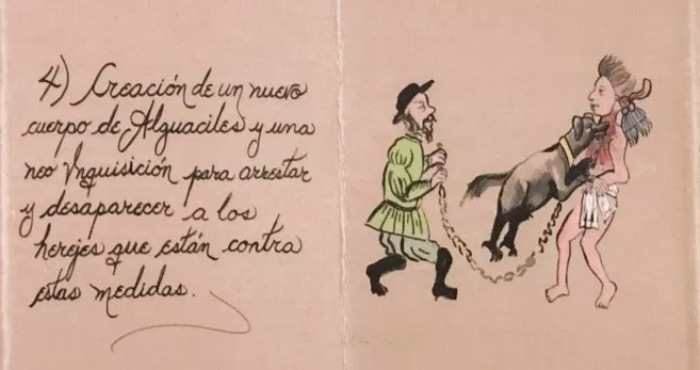 4) Creación de un nuevo
cuerpo de Alguaciles y una
neo Ynquisición para arrestar
y desaparecer a los
herejes que están contra
estas medidas.